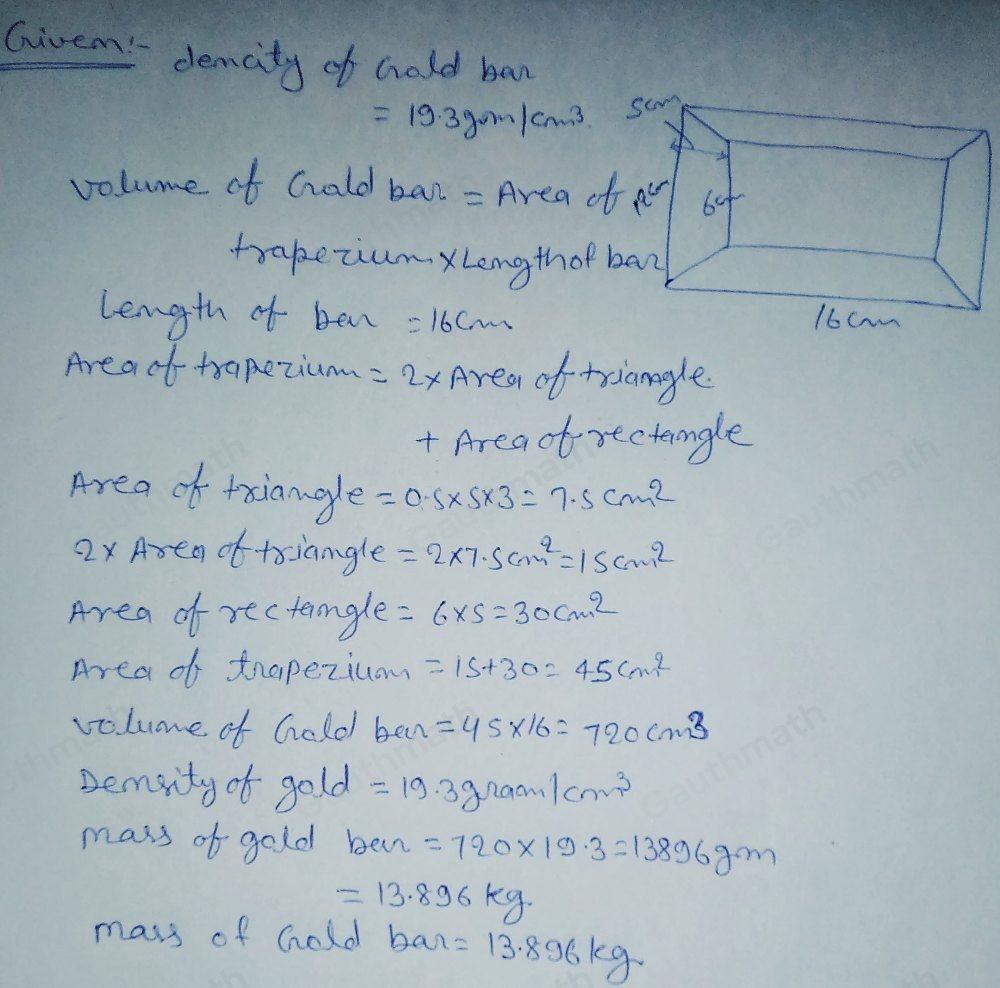 Given:-
dencity of Gold bar
= 19.3gm/cm³.
5cm
volume of Gold bar = Area of
12cm
6cm
trapezium x Length of bar
Length of bar = 16cm
16cm
Area of trapezium = 2 x Area of triangle.
+ Area of rectangle
Area of triangle = 0.5x5x3 = 7.5cm²
2x Area of triangle = 2x7.5cm² = 15cm²
Area of rectangle = 6x5 = 30cm²
Area of trapezium = 15+30 = 45cm²
volume of Gold bar = 45x16 = 720cm3
Density of gold = 19.3graam/cm³
mass of gold bar = 720x19.3 = 13896gm
= 13.896 kg.
mass of Gold bar = 13.896kg.
Gauthmath